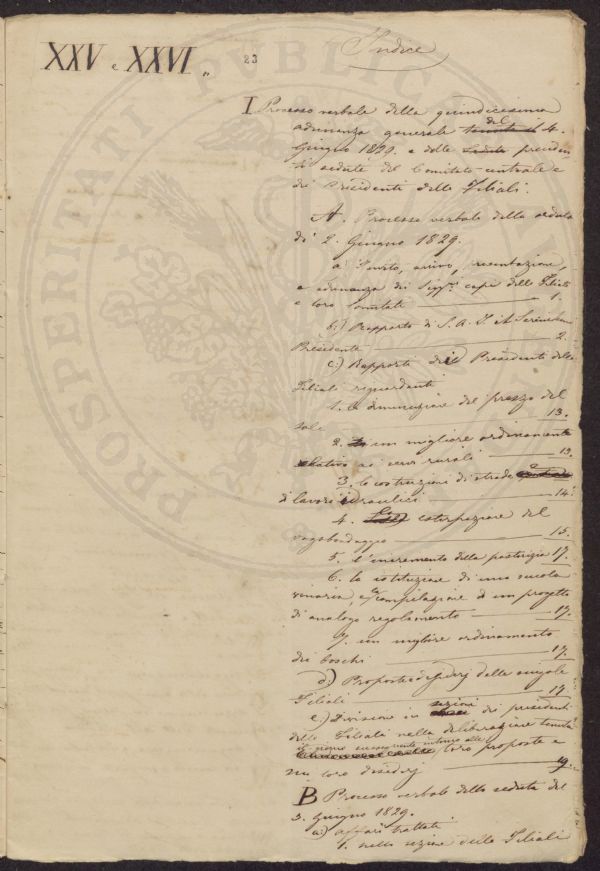 XXV e XXVI.
23
Indice
I Processo verbale della quindicesima
adunanza generale tenuta il del 4.
Giugno 1829. e delle sedute preceden-
ti sedute del Comitato centrale e
dei Presidenti delle Filiali.
A. Processo verbale della seduta
di 2. Giugno 1829.
a) Invito, arrivo, presentazione,
e adunanza dei Sigg.ri capi delle Filiali
e loro Comitati 1.
b.) Rapporto di S. A. I. il Serenissimo
Presidente 2.
c.) Rapporti dei Presidenti delle
Filiali riguardanti
1. la diminuzione del prezzo del
sale 13.
2. un migliore ordinamento
relativo ai servi rurali 13.
3. la costruzioni di strade e
di lavori idraulici 14.
4. estirpazione del
vagabondaggio 15.
5. l'incremento della pastorizia 17.
6. la istituzione di una scuola
vinaria, e compilazione d'un progetto
di analogo regolamento 17.
7. un migliore ordinamento
dei boschi 17.
d.) Proposte e desiderj delle singole
Filiali 17.
e.) Divisione in sezioni dei presidenti
delle Filiali nella deliberazione tenuta
il giorno susseguente intorno alle loro proposte e
ai loro desiderj 19.
B Processo verbale della seduta del
3. Giugno 1829.
a) affari trattati
1. nella sezione delle Filiali
PROSPERITATI PUBLICAE